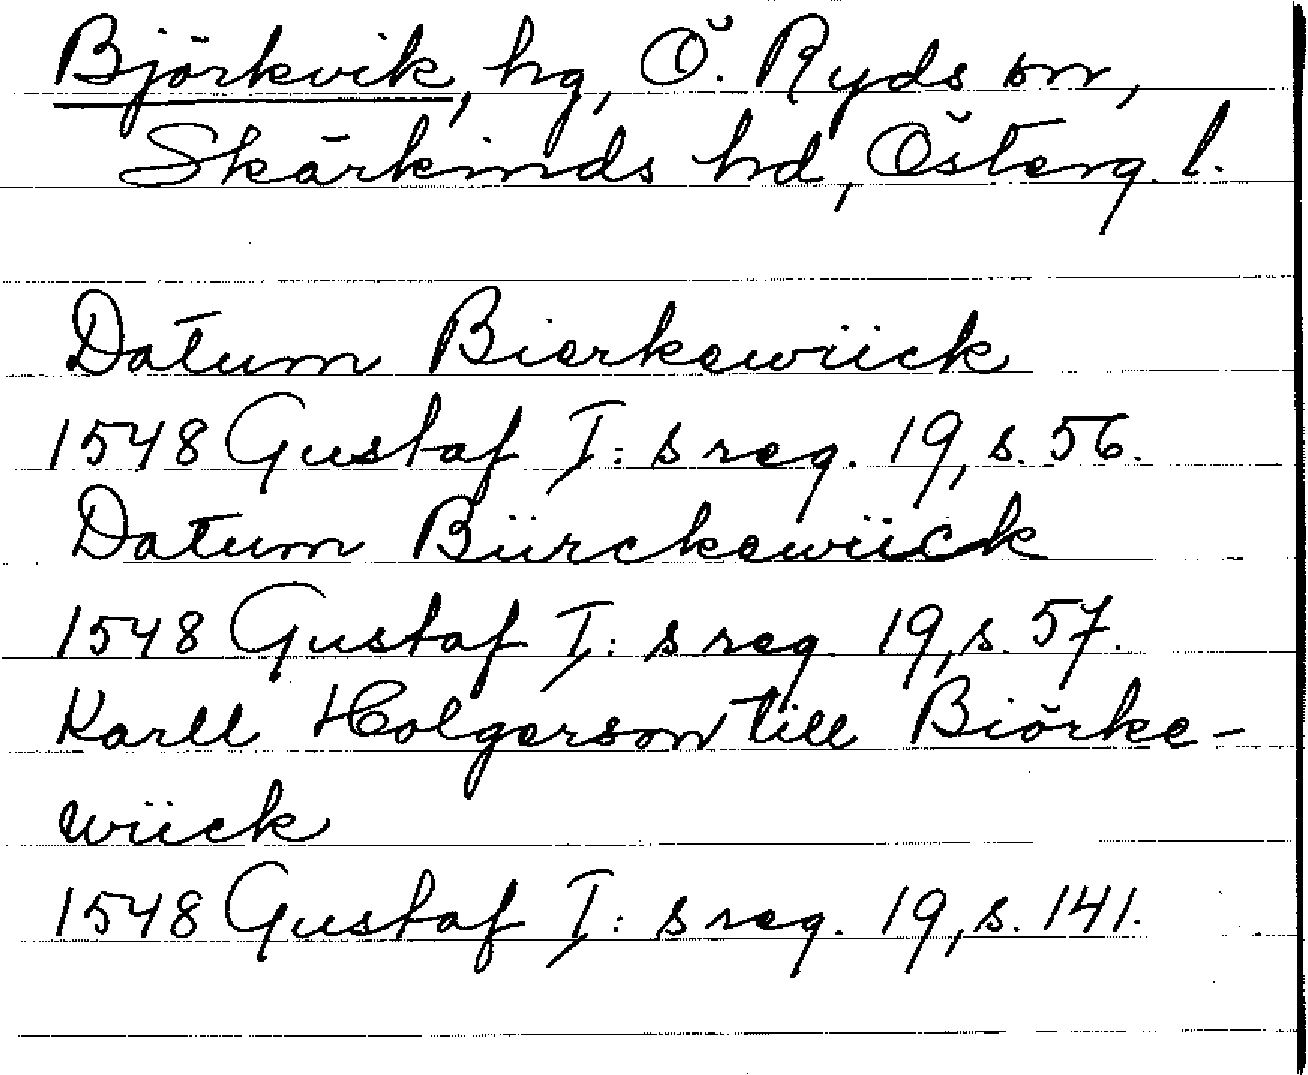 Björkvik, hg, Ö. Ryds sn,
Skärkinds hd, Österg. l.
Datum Bierkewiick
1548 Gustaf I:s reg. 19, s. 56.
Datum Biirckewiick
1548 Gustaf I:s reg. 19, s. 57.
Karll Holgerson till Biörke-
wiick
1548 Gustaf I:s reg. 19, s. 141.